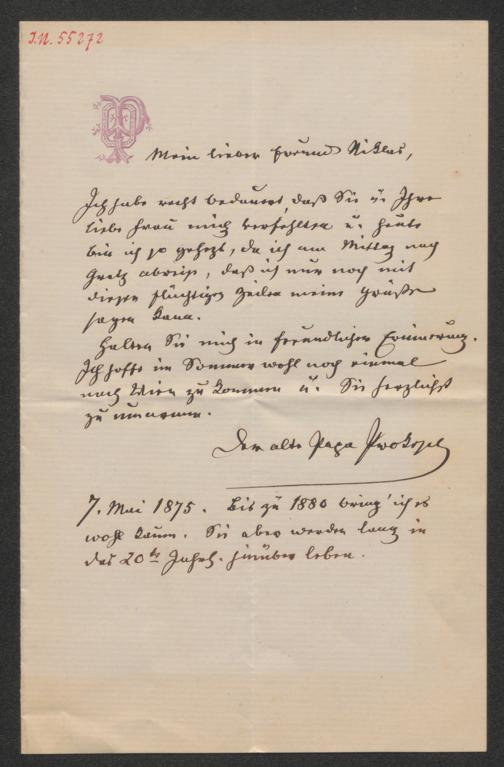 I.N. 55272
Mein lieber Freund Niklas,
Ich habe recht bedauert, daß Sie u. Ihre
liebe Frau mich verfehlten u. heute
bin ich so gehetzt, da ich am Mittag nach
Gratz abreise, daß ich nur noch mit
diesen flüchtigen Zeilen meine Grüße
sagen kann.
Halten Sie mich in freundlicher Erinnerung.
Ich hoffe im Sommer wohl noch einmal
nach Wien zu kommen u. Sie herzlichst
zu umarmen.
Der alte Papa Prokesch
7. Mai 1875. Bis zu 1880 bring' ich es
wohl kaum. Sie aber werden lang in
das 20te Jahrh. hinüber leben.